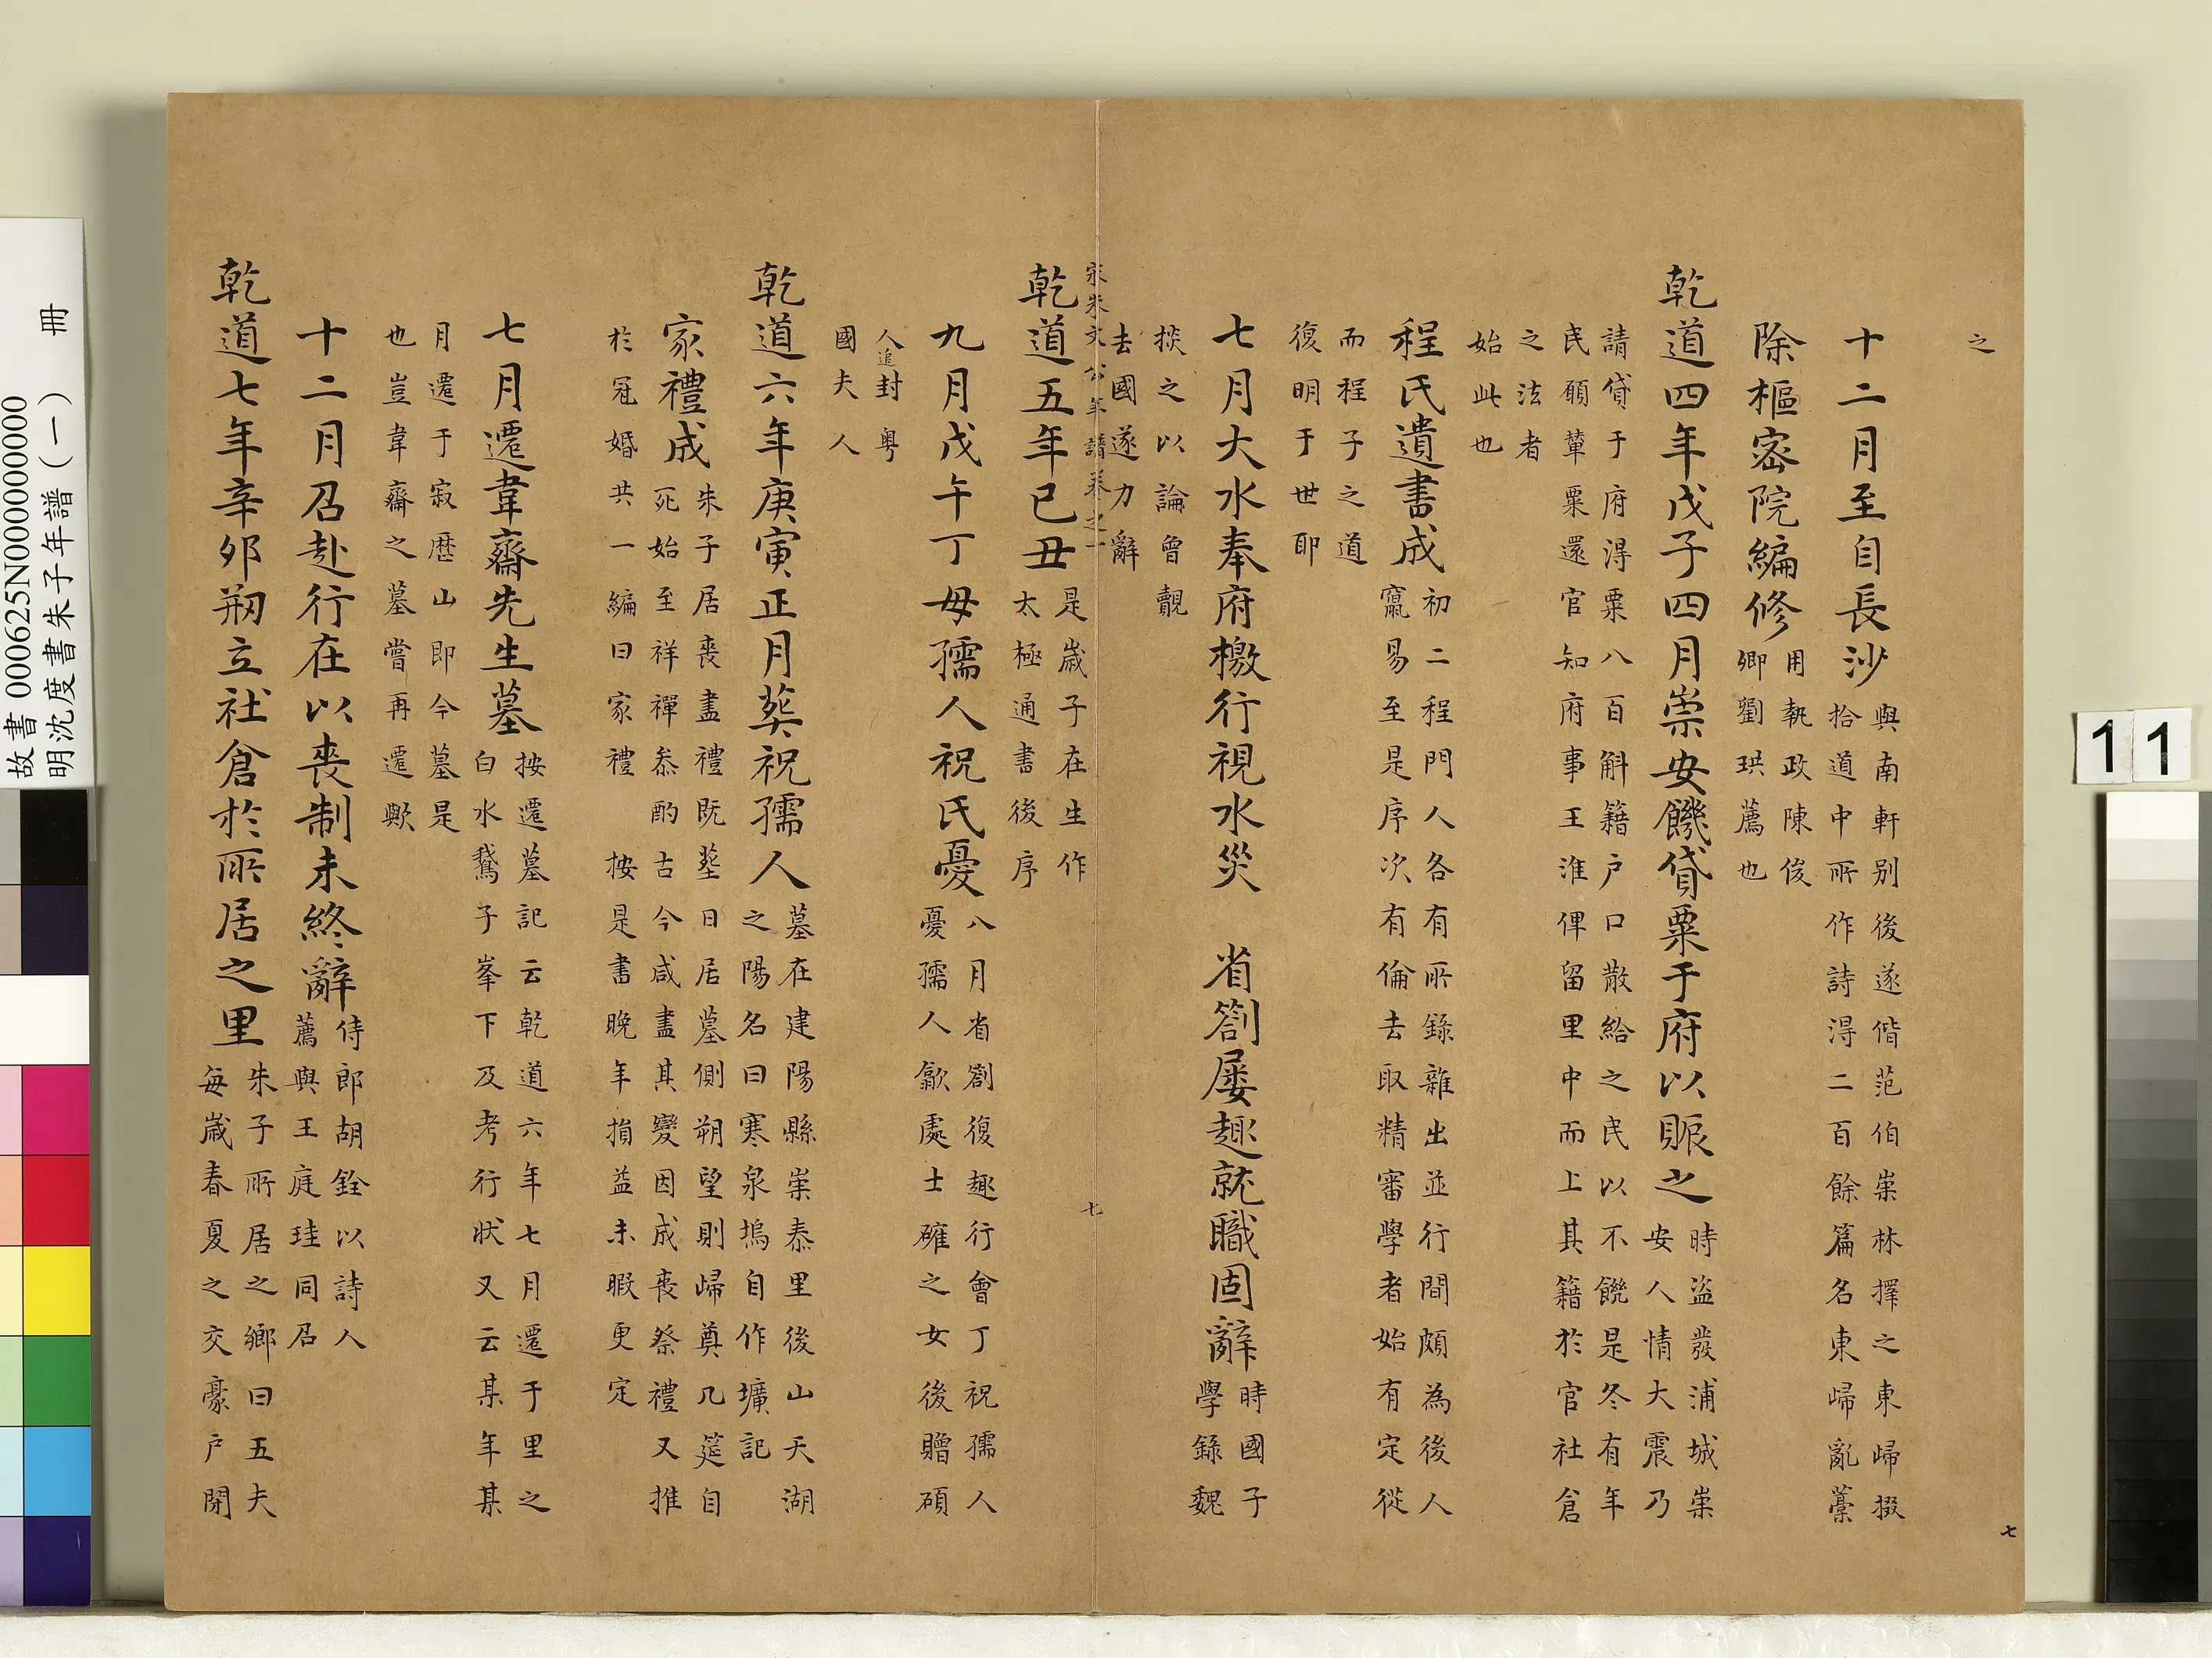 之
十二月至自長沙
與南軒别後遂偕范伯崇林擇之東歸掇
拾道中所作詩得二百餘篇名東歸亂藁
除樞密院編修
用執政陳俊
卿劉珙薦也
乾道四年戊子四月崇安饑貸粟于府以賑之
時盜發浦城崇
安人情大震乃
請貸于府得粟八百斛籍户口散給之民以不饑是冬有年
民願輦粟還官知府事王淮俾留里中而上其籍於官社倉
之法者
始此也
程氏遺書成
初二程門人各有所錄雜出並行間頗為後人
竄易至是序次有倫去取精審學者始有定從
而程子之道
復明于世耶
七月大水奉府檄行視水災 省劄屡趣就職固辭
時國子
學錄魏
掞之以論曾覿
去國遂力辭
宋朱文公年譜卷之一
七
乾道五年已丑
是歲子在生作
太極通書後序
九月戊午丁母孺人祝氏憂
八月省劄復趣行會丁祝孺人
憂孺人歙處士確之女後贈碩
人追封粤
國夫人
乾道六年庚寅正月葬祝孺人
墓在建陽縣崇泰里後山天湖
之陽名曰寒泉塢自作壙記
家禮成
朱子居喪盡禮既葬日居墓側朔望則歸奠几筵自
死始至祥禫叅酌古今咸盡其變因成喪祭禮又推
於冠婚共一編曰家禮 按是書晚年損益未暇更定
七月遷韋齋先生墓
按遷墓記云乾道六年七月遷于里之
白水鵞子峯下及考行狀又云某年某
月遷于寂歴山即今墓是
也豈韋齋之墓嘗再遷歟
十二月召赴行在以喪制未終辭
侍郎胡銓以詩人
薦與王庭珪同召
乾道七年辛夘剏立社倉於所居之里
朱子所居之鄉曰五夫
每歲春夏之交豪户閉
七
11
故書 000625N000000000
明沈度書朱子年譜（一） 冊